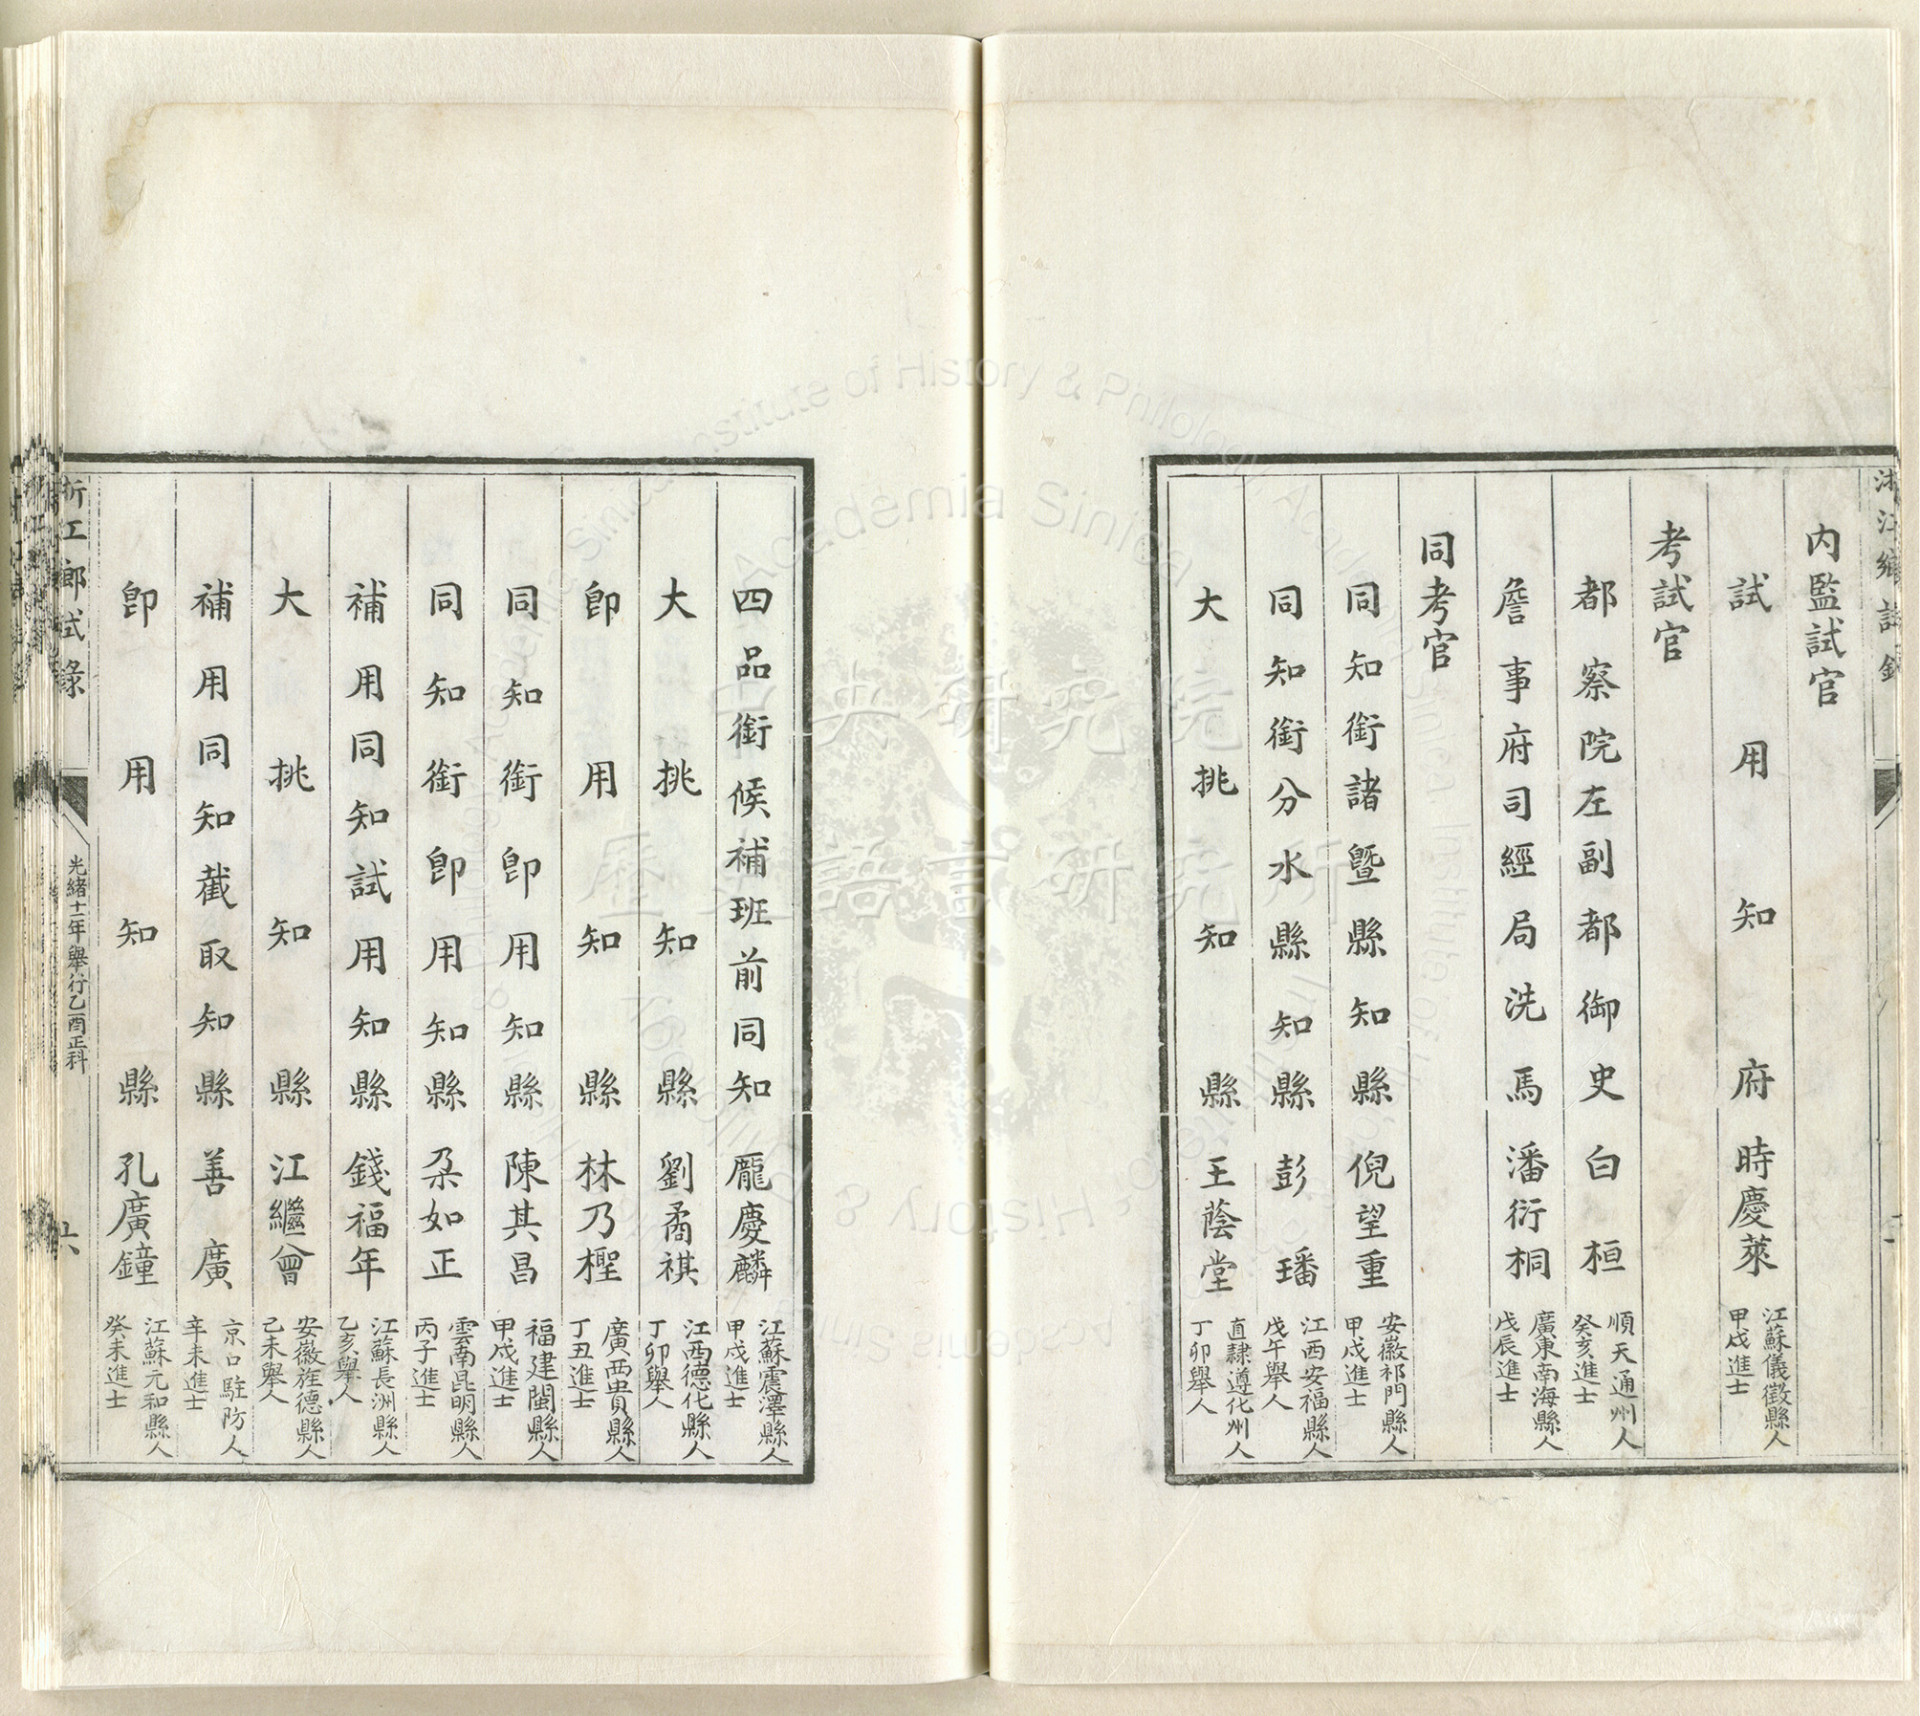 浙江鄉試錄
內監試官
試用知府時慶萊 江蘇儀徵縣人 甲戌進士
考試官
都察院左副都御史白桓 順天通州人 癸亥進士
詹事府司經局洗馬潘衍桐 廣東南海縣人 戊辰進士
同考官
同知銜諸暨縣知縣倪望重 安徽祁門縣人 甲戌進士
同知銜分水縣知縣彭璠 江西安福縣人 戊午舉人
大挑知縣王蔭堂 直隸遵化州人 丁卯舉人
四品銜候補班前同知龐慶麟 江蘇震澤縣人 甲戌進士
大挑知縣劉矞祺 江西德化縣人 丁卯舉人
卽用知縣林乃檉 廣西貴縣人 丁丑進士
同知銜卽用知縣陳其昌 福建閩縣人 甲戌進士
同知銜卽用知縣朶如正 雲南昆明縣人 丙子進士
補用同知試用知縣錢福年 江蘇長洲縣人 乙亥舉人
大挑知縣江繼曾 安徽旌德縣人 己未舉人
補用同知截取知縣善廣 京口駐防人 辛未進士
卽用知縣孔廣鐘 江蘇元和縣人 癸未進士
浙江鄉試錄
光緒十一年舉行乙酉正科
六
Institute of History & Philology, Academia Sinica
Academia Sinica
中央研究院
歷史語言研究所